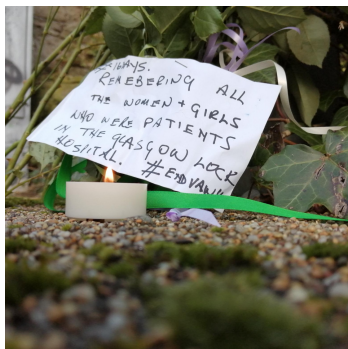 ALWAYS.
REMEBERING ALL
THE WOMEN + GIRLS
WHO WERE PATIENTS
IN THE GLASGOW LOCK
HOSPITAL. #ENDVAWG